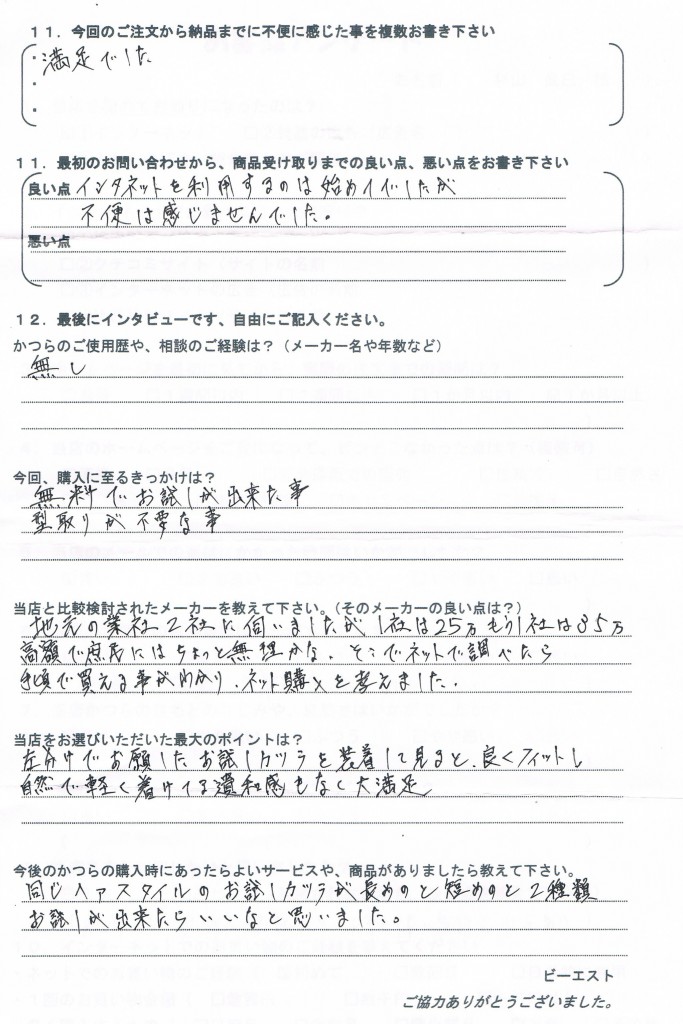 １１．今回のご注文から納品までに不便に感じた事を複数お書き下さい
・満足でした
・
・
１１．最初のお問い合わせから、商品受け取りまでの良い点、悪い点をお書き下さい
良い点 インタネットを利用するのは始めてでしたが
不便は感じませんでした。
悪い点
１２．最後にインタビューです、自由にご記入ください。
かつらのご使用歴や、相談のご経験は？（メーカー名や年数など）
無し
今回、購入に至るきっかけは？
無料でお試しが出来た事
型取りが不要な事
当店と比較検討されたメーカーを教えて下さい。（そのメーカーの良い点は？）
地元の業社２社に伺いましたが１社は25万もう１社は35万
高額で庶民にはちょっと無理かな、そこでネットで調べたら
手頃で買える事がわかり、ネット購入を考えました。
当店をお選びいただいた最大のポイントは？
左分けでお願したお試しカツラを装着して見ると、良くフィットし
自然で軽く着けてる違和感もなく大満足
今後のかつらの購入時にあったらよいサービスや、商品がありましたら教えて下さい。
同じヘアスタイルのお試しカツラが長めのと短めのと２種類
お試しが出来たらいいなと思いました。
ビーエスト
ご協力ありがとうございました。